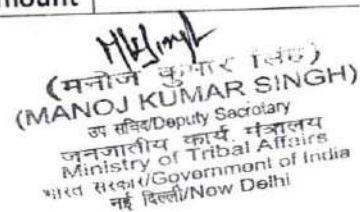 mount
(मनोज कुमार सिंह)
(MANOJ KUMAR SINGH)
उप सचिव/Deputy Secretary
जनजातीय कार्य मंत्रालय
Ministry of Tribal Affairs
भारत सरकार/Government of India
नई दिल्ली/New Delhi